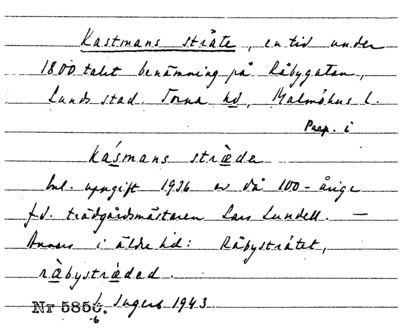 Kastmans stråte, en tid under
1800 talet benämning på Råbygatan,
Lunds stad. Torna hd, Malmöhus l.
Prep. i
kásmans stræde
enl. uppgift 1936 av då 100-årige
f.d. trädgårdsmästaren Lars Lundell. —
Annars i äldre tid: Råbystråtet,
råbystrædad.
Nr 5850. Ingers 1943.
6